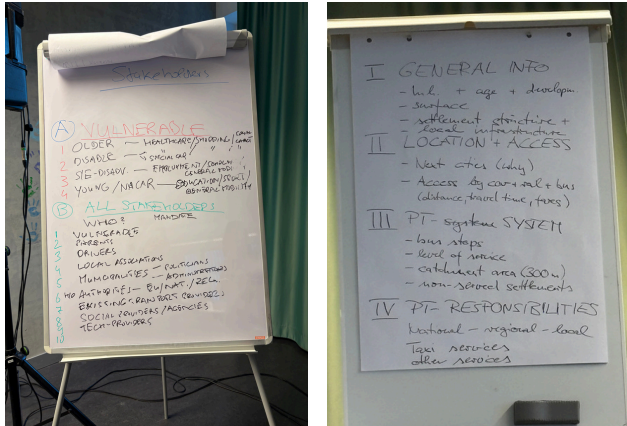 Stakeholders
A VULNERABLE
1 OLDER — HEALTHCARE/SHOPPING/
2 DISABLE — " SPECIAL CAR/ " "
3 S/E-DISADV. — EMPLOYMENT/
4 YOUNG/NACAR — EDUCATION/SPORT/
GENERAL MOBILITY
B ALL STAKEHOLDERS
WHO? MANDATE
1 VULNERABLE
2 PARENTS
3 DRIVERS
4 LOCAL ASSOCIATIONS
5 MUNICIPALITIES — POLITICIANS
— ADMINISTRATIONS
6 AUTHORITIES — EU/NAT./REG.
7 EXISTING TRANSPORT PROVIDERS
8 SOCIAL PROVIDERS/AGENCIES
TECH-PROVIDERS
I GENERAL INFO
- Inh. + age + developm.
- surface
- settlement structure +
local infrastructure
II LOCATION + ACCESS
- Next cities (why)
- Access by car + rail + bus
(distance, travel time, fares)
III PT-system SYSTEM
- bus stops
- level of service
- catchment area (300m)
- non-served settlements
IV PT-RESPONSIBILITIES
National - regional - local
Taxi services
other services